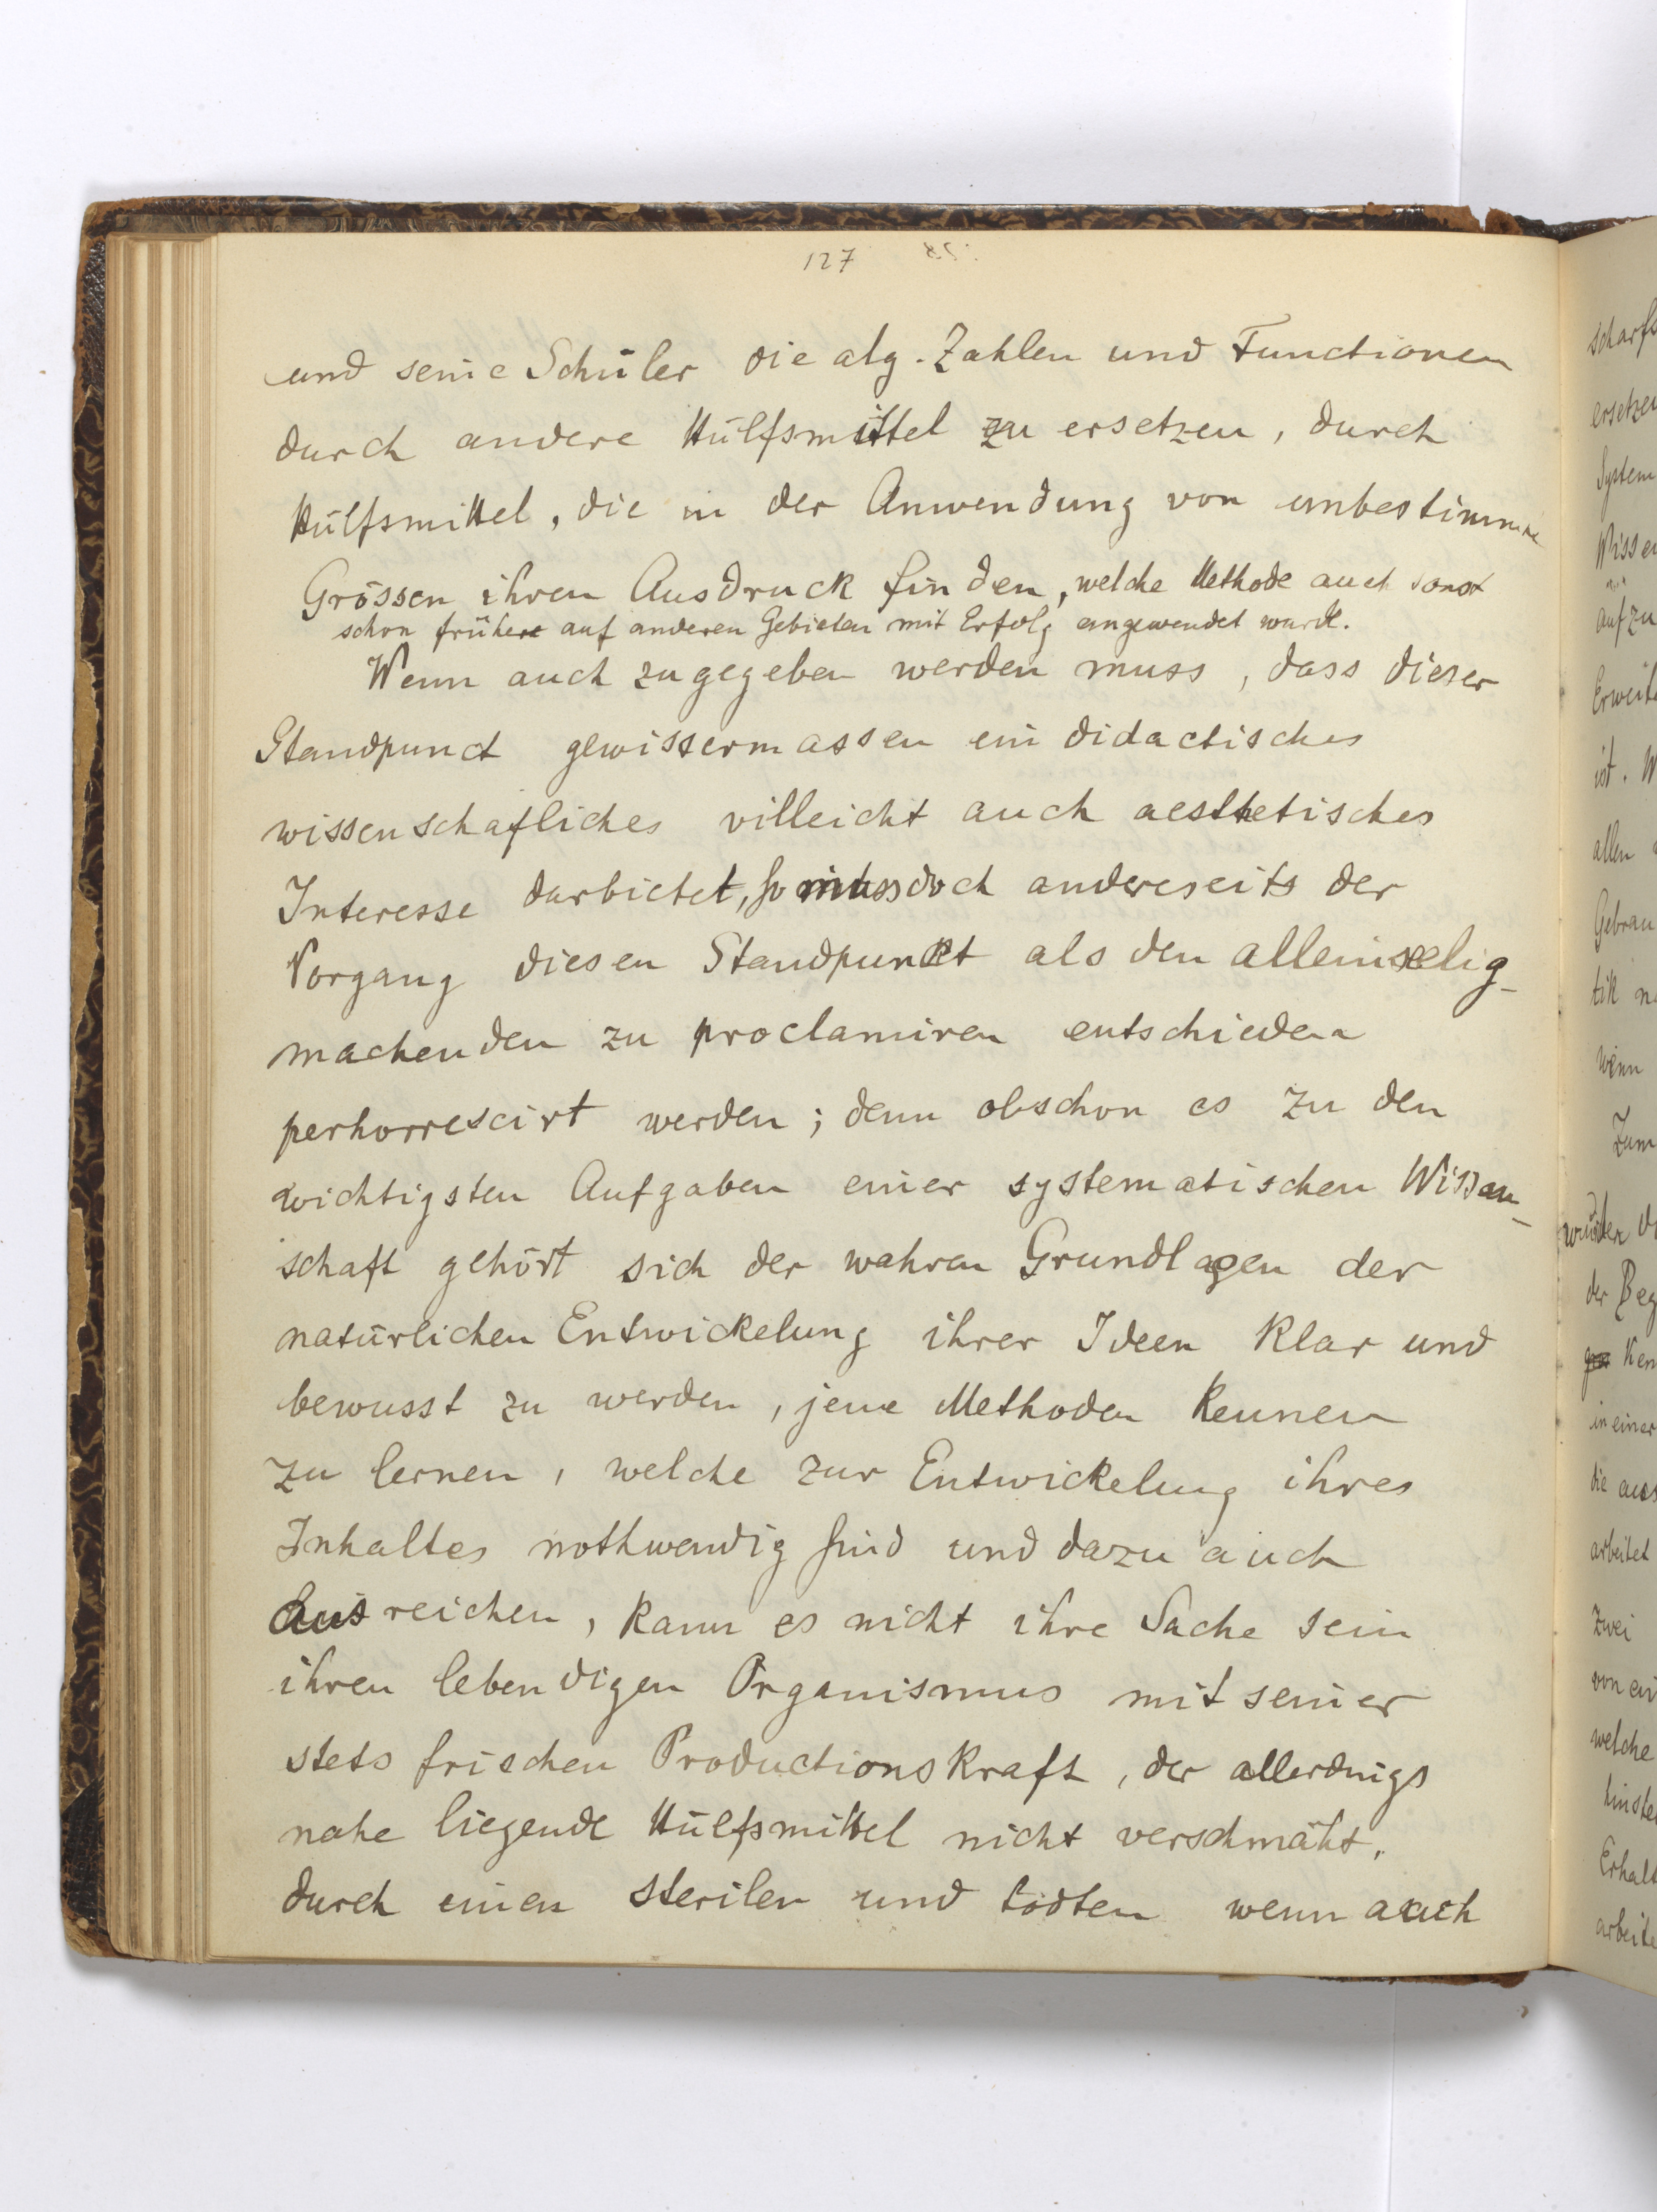 127
und seine Schüler die alg. Zahlen und Functionen
durch andere Hülfsmittel zu ersetzen, durch
Hülfsmittel, die in der Anwendung von unbestimmten
Grössen ihren Ausdruck finden, welche Methode auch sonst
schon früher auf anderen Gebieten mit Erfolg angewendet wurde.
Wenn auch zugegeben werden muss, dass dieser
Standpunct gewissermassen ein didactisches
wissenschafliches villeicht auch aesthetisches
Interesse darbietet, so muss doch andereseits der
Vorgang diesen Standpunkt als den alleinselig-
machenden zu proclamiren entschieden
perhorrescirt werden; denn obschon es zu den
wichtigsten Aufgaben einer systematischen Wissen-
schaft gehört sich der wahren Grundlagen der
natürlichen Entwickelung ihrer Ideen klar und
bewusst zu werden, jene Methoden kennen
zu lernen, welche zur Entwickelung ihres
Inhaltes nothwendig sind und dazu auch
ausreichen, kann es nicht ihre Sache sein
ihren lebendigen Organismus mit seiner
stets frischen Productionskraft, der allerdings
nahe liegende Hülfsmittel nicht verschmäht,
durch einen sterilen und todten wenn auch
scharfs
ersetzen
System
Wissen
aufzu
Erweite
ist. W
allen
Gebrau
tik
wenn
Zum
wurden
der Beg
Ken
in einer
die aus
arbeitet
zwei
von ein
welche
hinste
Erhalt
arbeite